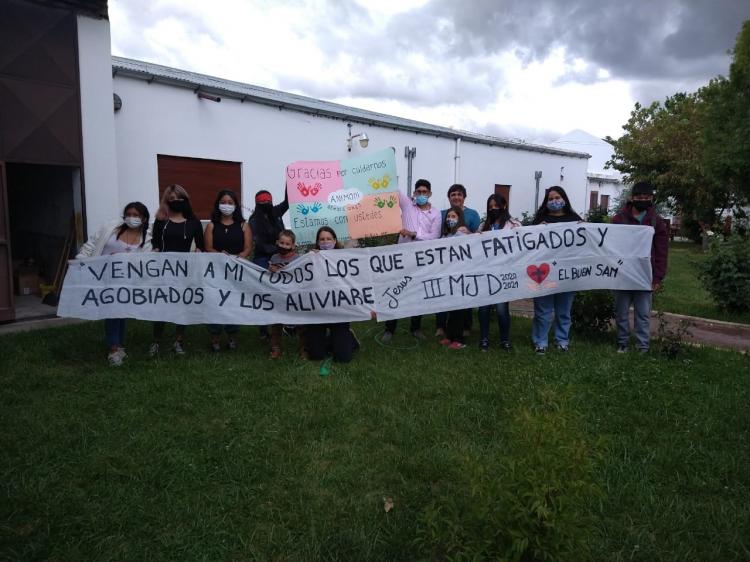 Gracias por cuidarnos
ANIMO!!!
Estamos con ustedes
"VENGAN A MI TODOS LOS QUE ESTAN FATIGADOS Y
AGOBIADOS Y LOS ALIVIARE" Jesus III MJD 2020 2021 "EL BUEN SAM"